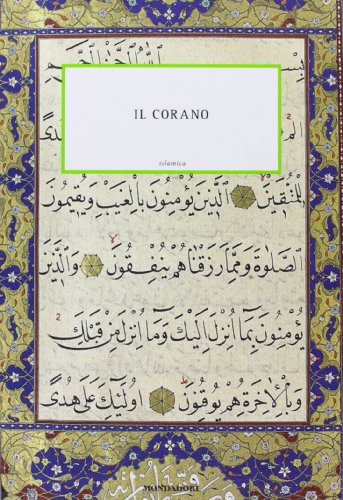 IL CORANO
islamica
الم هُدًى
لِلْمُتَّقِينَ الَّذِينَ يُؤْمِنُونَ بِالْغَيْبِ وَيُقِيمُونَ
الصَّلٰوةَ وَمِمَّا رَزَقْنَاهُمْ يُنْفِقُونَ وَالَّذِينَ
يُؤْمِنُونَ بِمَا اُنْزِلَ اِلَيْكَ وَمَا اُنْزِلَ مِنْ قَبْلِكَ
وَبِالْاٰخِرَةِ هُمْ يُوقِنُونَ اُولٰئِكَ عَلٰى هُدًى
MONDADORI